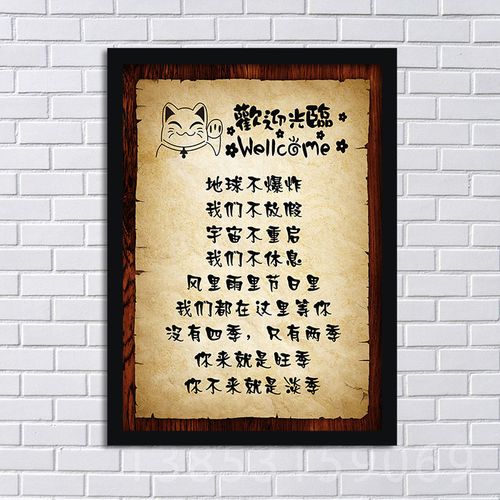 歡迎光臨
Wellcome
地球不爆炸
我们不放假
宇宙不重启
我们不休息
风里雨里节日里
我们都在这里等你
没有四季，只有两季
你来就是旺季
你不来就是淡季